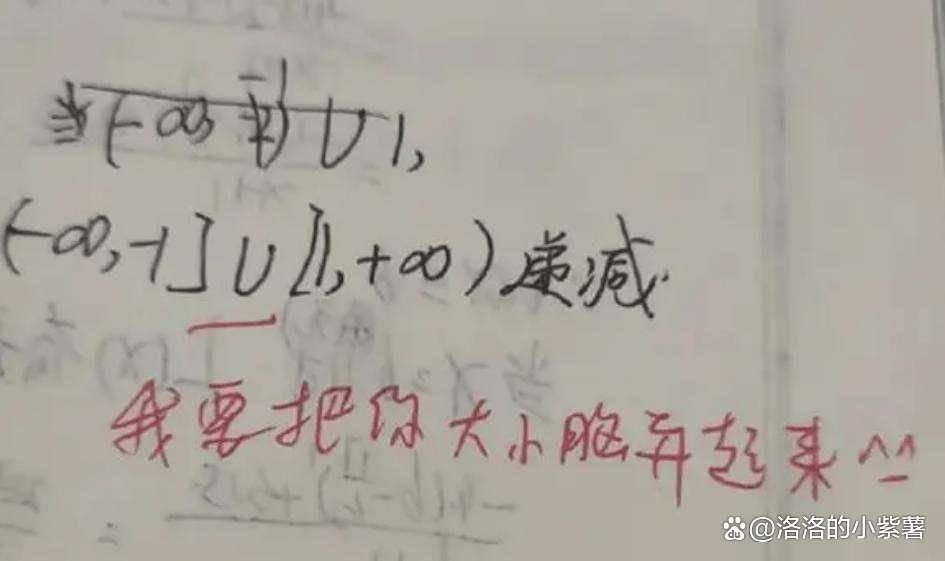 当(-∞, -1) ∪ 1,
(-∞,-1]∪[1,+∞)递减.
我要把你大小脑并起来^_^
@洛洛的小紫薯